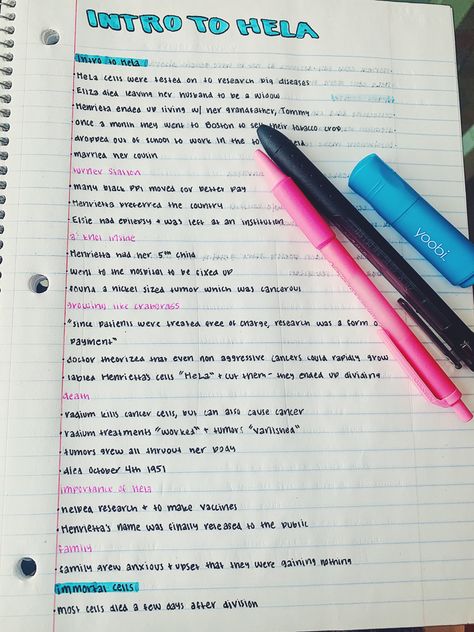 INTRO TO HELA
Intro to Hela
· HeLa cells were tested on to research big diseases
· Eliza died leaving her husband to be a widow
· Henrietta ended up living w/ her grandfather, Tommy
· once a month they went to Boston to sell their tobacco crop
· dropped out of school to work in the
· married her cousin
Turner Station
· many black ppl moved for better pay
· Henrietta preferred the country
· Elsie had epilepsy + was left at an institution
a knot inside
· Henrietta had her 5th child
· went to the hospital to be fixed up
· found a nickel sized tumor which was cancerous
growing like crabgrass
· "since patients were treated free of charge, research was a form o
payment"
· doctor theorized that even non aggressive cancers could rapidly grow
· labled Henrietta's cells "HeLa" + cut them - they ended up dividing
death
· radium kills cancer cells, but can also cause cancer
· radium treatments "worked" + tumors "vanished"
· tumors grew all thruout her body
· died October 4th 1951
importance of hela
· helped research + to make vaccines
· Henrietta's name was finally released to the public
family
· family grew anxious + upset that they were gaining nothing
immortal cells
· most cells died a few days after division
yoobi